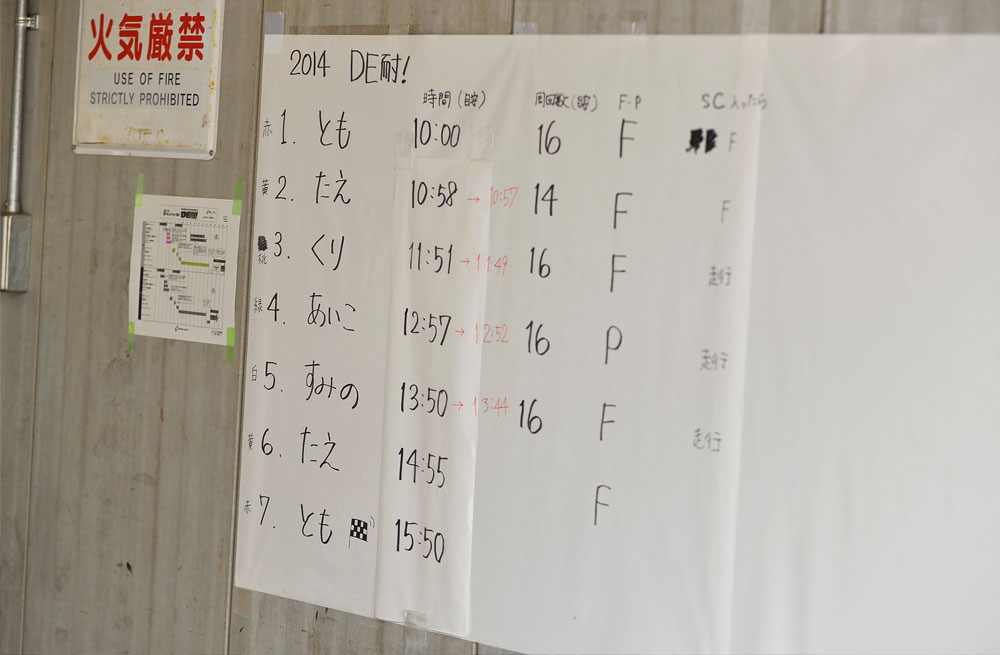 火気厳禁
USE OF FIRE
STRICTLY PROHIBITED
2014 DE耐!
時間(目安) 周回数(目安) F・P SC入ったら
赤 1. とも 10:00 16 F F
黄 2. たえ 10:58 → 10:57 14 F F
桃 3. くり 11:51 → 11:49 16 F 走行
緑 4. あいこ 12:57 → 12:52 16 P 走行
白 5. すみの 13:50 → 13:44 16 F 走行
黄 6. たえ 14:55 F
赤 7. とも 15:50